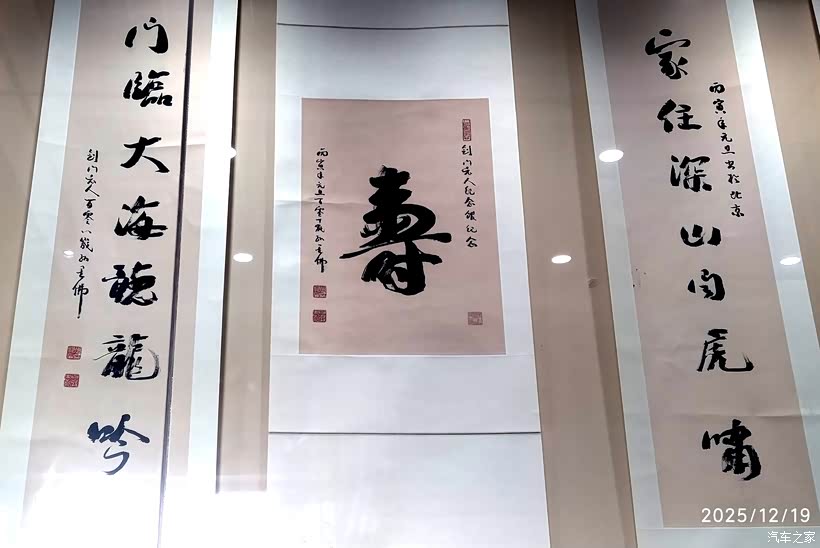 家住深山闻虎啸
丙寅年元旦书於北京
剑门老人纪念馆纪念
壽
丙寅年元旦百零
门臨大海聽龍吟
剑门老人百零八岁孙墨佛
2025/12/19
汽车之家